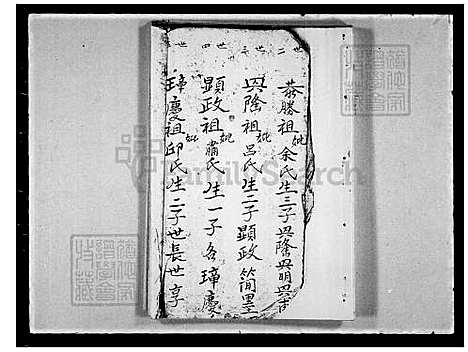 世二
世三
世四
世
恭勝祖妣余氏生三子興隆興明興
興隆祖妣呂氏生二子顯政簡墨
顯政祖妣蕭氏生一子名璋慶
璋慶祖妣邱氏生二子世長世享
FamilySearch